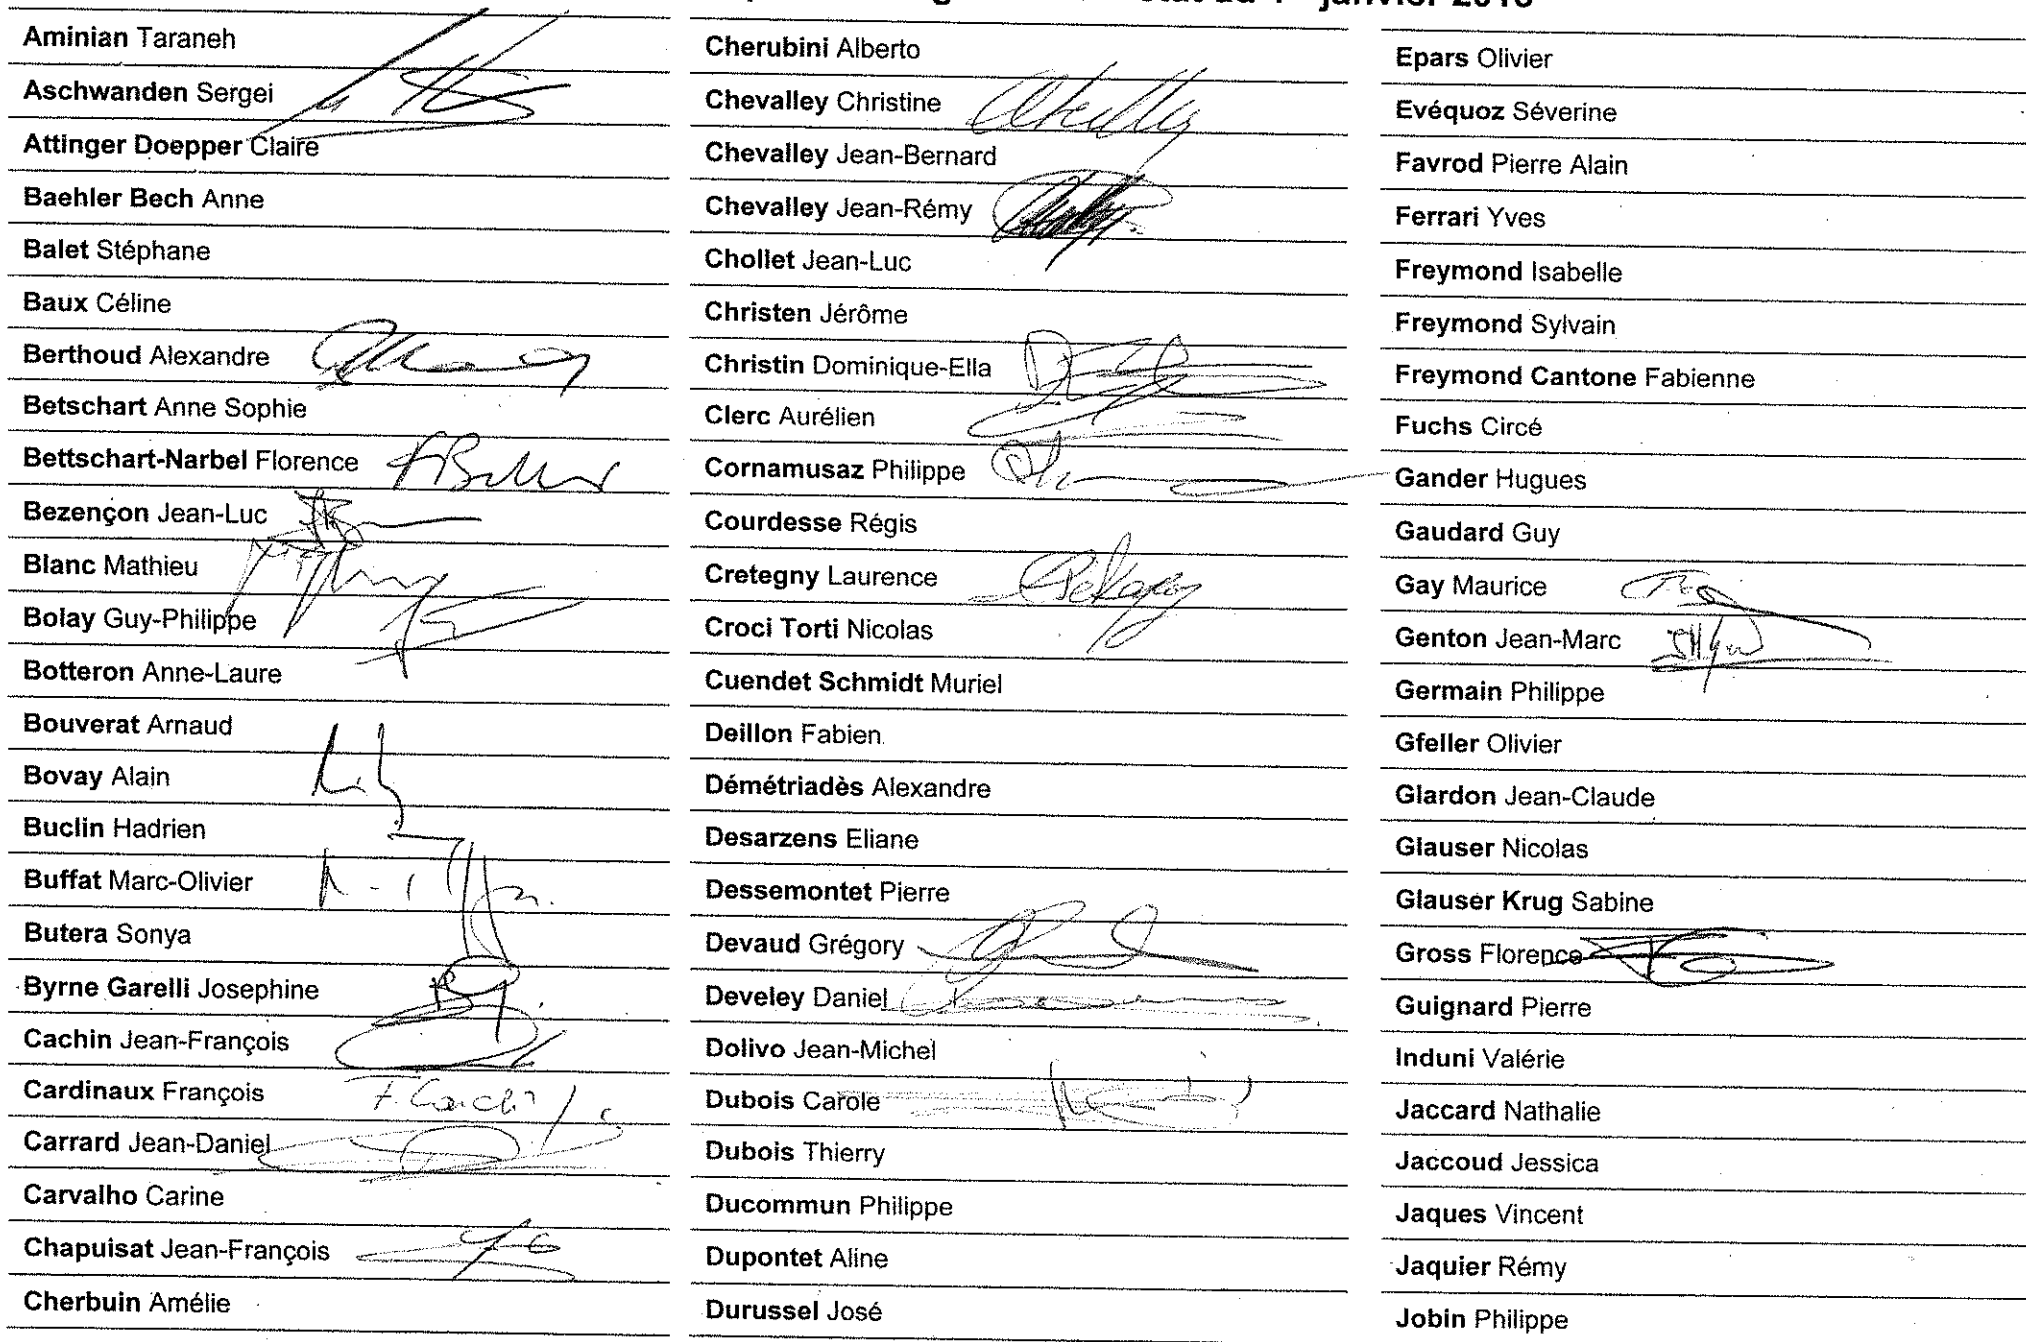 janvier
Aminian Taraneh
Aschwanden Sergei
Attinger Doepper Claire
Baehler Bech Anne
Balet Stéphane
Baux Céline
Berthoud Alexandre
Betschart Anne Sophie
Bettschart-Narbel Florence
Bezençon Jean-Luc
Blanc Mathieu
Bolay Guy-Philippe
Botteron Anne-Laure
Bouverat Arnaud
Bovay Alain
Buclin Hadrien
Buffat Marc-Olivier
Butera Sonya
Byrne Garelli Josephine
Cachin Jean-François
Cardinaux François
Carrard Jean-Daniel
Carvalho Carine
Chapuisat Jean-François
Cherbuin Amélie
Cherubini Alberto
Chevalley Christine
Chevalley Jean-Bernard
Chevalley Jean-Rémy
Chollet Jean-Luc
Christen Jérôme
Christin Dominique-Ella
Clerc Aurélien
Cornamusaz Philippe
Courdesse Régis
Cretegny Laurence
Croci Torti Nicolas
Cuendet Schmidt Muriel
Deillon Fabien
Démétriadès Alexandre
Desarzens Eliane
Dessemontet Pierre
Devaud Grégory
Develey Daniel
Dolivo Jean-Michel
Dubois Carole
Dubois Thierry
Ducommun Philippe
Dupontet Aline
Durussel José
Epars Olivier
Evéquoz Séverine
Favrod Pierre Alain
Ferrari Yves
Freymond Isabelle
Freymond Sylvain
Freymond Cantone Fabienne
Fuchs Circé
Gander Hugues
Gaudard Guy
Gay Maurice
Genton Jean-Marc
Germain Philippe
Gfeller Olivier
Glardon Jean-Claude
Glauser Nicolas
Glauser Krug Sabine
Gross Florence
Guignard Pierre
Induni Valérie
Jaccard Nathalie
Jaccoud Jessica
Jaques Vincent
Jaquier Rémy
Jobin Philippe